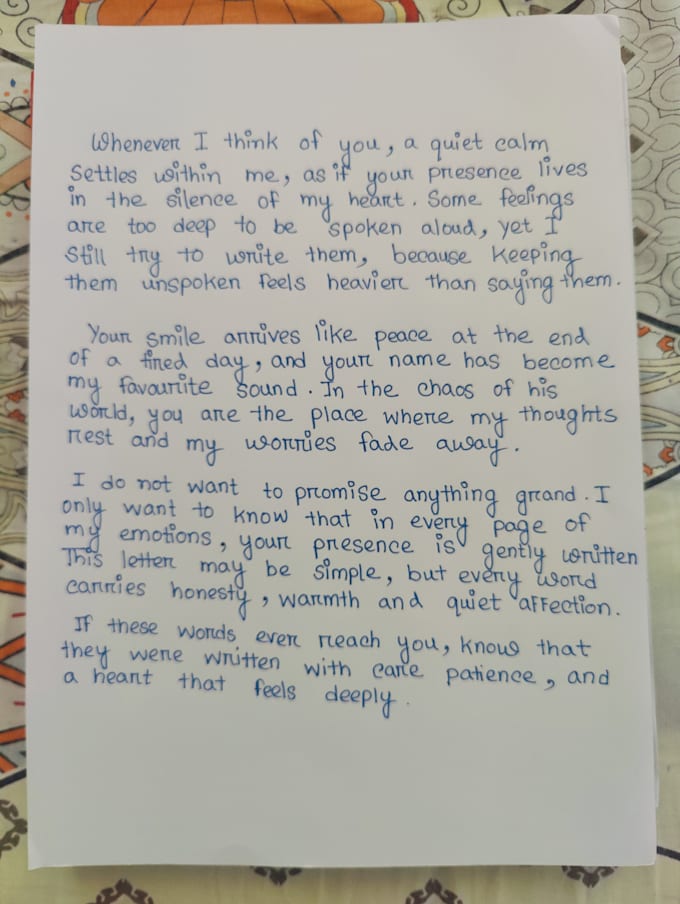 Whenever I think of you, a quiet calm
Settles within me, as if your presence lives
in the silence of my heart. Some feelings
are too deep to be spoken aloud, yet I
Still try to write them, because keeping
them unspoken feels heavier than saying them.
Your smile arrives like peace at the end
of a tired day, and your name has become
my favourite sound. In the chaos of his
world, you are the place where my thoughts
rest and my worries fade away.
I do not want to promise anything grand. I
only want to know that in every page of
my emotions, your presence is gently written
This letter may be simple, but every word
carries honesty, warmth and quiet affection.
If these words ever reach you, know that
they were written with care patience, and
a heart that feels deeply.